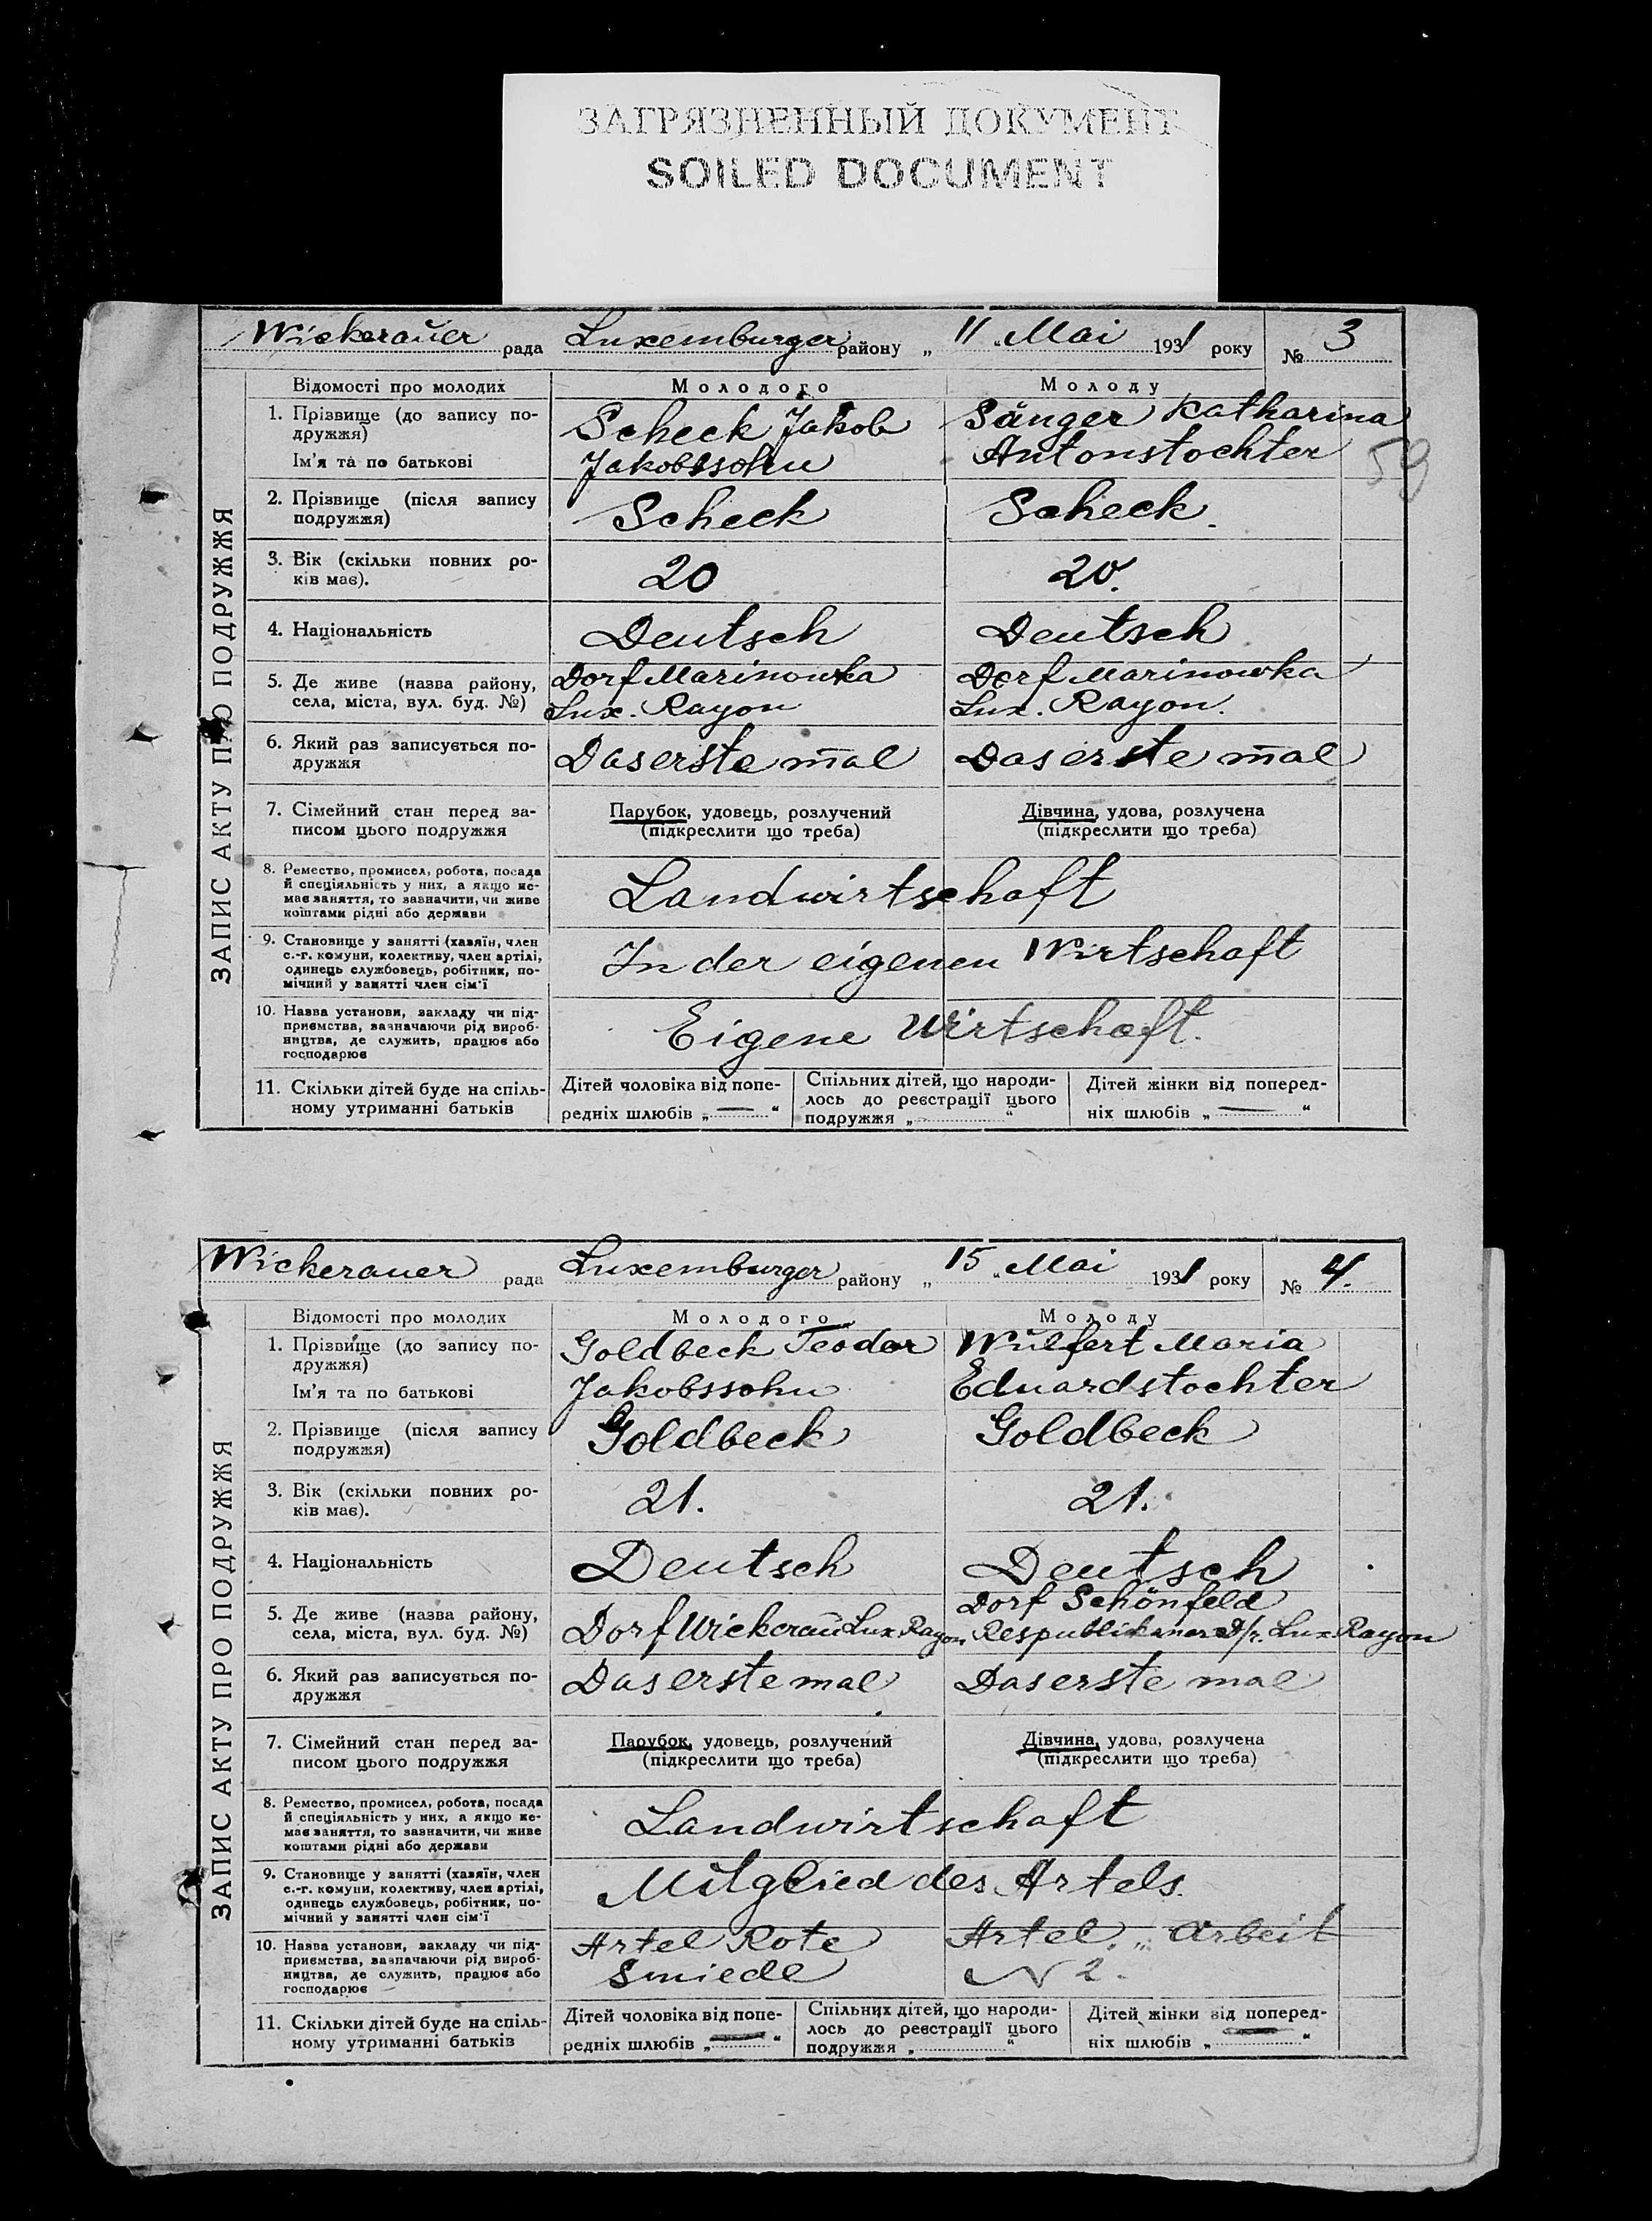 ЗАГРЯЗНЕННЫЙ ДОКУМЕНТ
SOILED DOCUMENT
Wickerauer рада Luxemburger району „ 11 „ Mai 1931 року № 3
59
ЗАПИС АКТУ ПРО ПОДРУЖЖЯ
Відомості про молодих Молодого Молоду
1. Прізвище (до запису по- Scheck Jakob Sänger Katharina
дружжя)
Ім'я та по батькові Jakobssohn Antonstochter
2. Прізвище (після запису Scheck Scheck
подружжя)
3. Вік (скільки повних ро- 20 20.
ків має).
4. Національність Deutsch Deutsch
5. Де живе (назва району, Dorf Marinowka Dorf Marinowka
села, міста, вул. буд. №) Lux. Rayon Lux. Rayon.
6. Який раз записується по- Das erste mal Das erste mal
дружжя
7. Сімейний стан перед за- Парубок, удовець, розлучений Дівчина, удова, розлучена
писом цього подружжя (підкреслити що треба) (підкреслити що треба)
8. Ремество, промисел, робота, посада
й спеціяльність у них, а якщо не- Landwirtschaft
має заняття, то зазначити, чи живе
коштами рідні або держави
9. Становище у занятті (хазяїн, член
с.-г. комуни, колективу, член артілі, In der eigenen Wirtschaft
одинець службовець, робітник, по-
мічний у занятті член сім'ї
10. Назва установи, закладу чи під-
приємства, зазначаючи рід вироб- Eigene Wirtschaft.
ництва, де служить, працює або
господарює
11. Скільки дітей буде на спіль- Дітей чоловіка від попе- Спільних дітей, що народи- Дітей жінки від поперед-
ному утриманні батьків редніх шлюбів „ — “ лось до реєстрації цього ніх шлюбів „ — “
подружжя „ “
Wickerauer рада Luxemburger району „ 15 „ Mai 1931 року № 4.
ЗАПИС АКТУ ПРО ПОДРУЖЖЯ
Відомості про молодих Молодого Молоду
1. Прізвище (до запису по- Goldbeck Teodor Wülfert Maria
дружжя)
Ім'я та по батькові Jakobssohn Eduardstochter
2. Прізвище (після запису Goldbeck Goldbeck
подружжя)
3. Вік (скільки повних ро- 21. 21.
ків має).
4. Національність Deutsch Deutsch
5. Де живе (назва району, Dorf Schönfeld
села, міста, вул. буд. №) Dorf Wickerau Lux. Rayon Respublikaner D/r. Lux Rayon
6. Який раз записується по- Das erste mal Das erste mal
дружжя
7. Сімейний стан перед за- Парубок, удовець, розлучений Дівчина, удова, розлучена
писом цього подружжя (підкреслити що треба) (підкреслити що треба)
8. Ремество, промисел, робота, посада
й спеціяльність у них, а якщо не- Landwirtschaft
має заняття, то зазначити, чи живе
коштами рідні або держави
9. Становище у занятті (хазяїн, член
с.-г. комуни, колективу, член артілі, Mitglied des Artels.
одинець службовець, робітник, по-
мічний у занятті член сім'ї
10. Назва установи, закладу чи під- Artel Rote Artel „ Arbeit
приємства, зазначаючи рід вироб- Smiede N 2.
ництва, де служить, працює або
господарює
11. Скільки дітей буде на спіль- Дітей чоловіка від попе- Спільних дітей, що народи- Дітей жінки від поперед-
ному утриманні батьків редніх шлюбів „ — “ лось до реєстрації цього ніх шлюбів „ — “
подружжя „ “